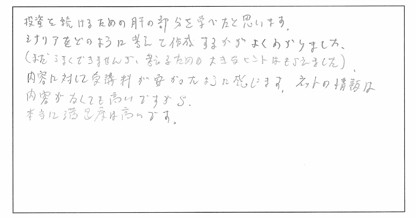 投資を続けるための肝の部分を学べたと思います。
シナリオをどのように考えて作成するかがよくわかりました。
(まだうまくできませんが、考えるための大きなヒントはもらえました)。
内容に対して受講料が安かったように感じます。ネットの情報は
内容がなくても高いですから。
本当に満足度は高いです。